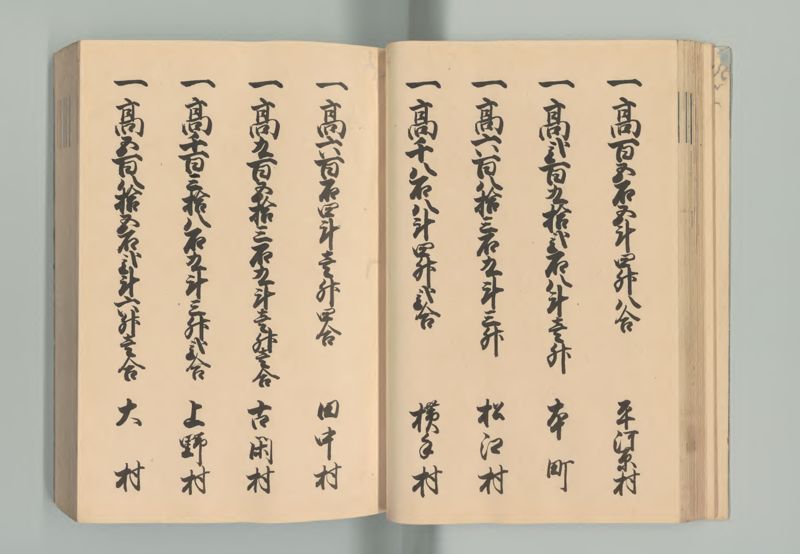 一高百五石五斗四升八合 平河原村
一高弐百九拾弐石八斗壱升 本町
一高六百八拾三石九斗三升 松江村
一高千八石八斗四升弐合 横手村
一高六百石四斗壱升四合 田中村
一高九百五拾三石九斗壱升壱合 古閑村
一高千百三拾八石九斗三升弐合 上野村
一高五百八拾五石弐斗六升壱合 大村